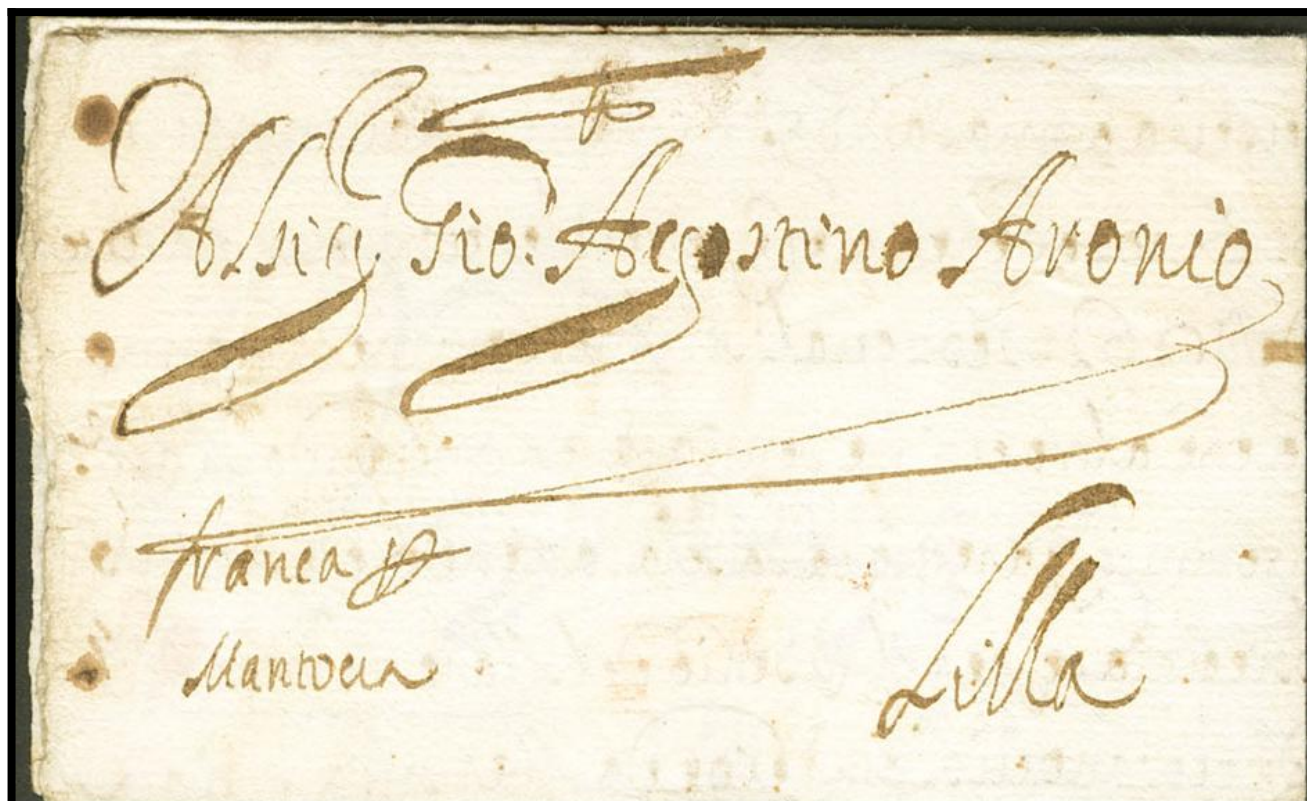 Al sig Gio: Agostino Aronio
franca p
Mantova
Lilla